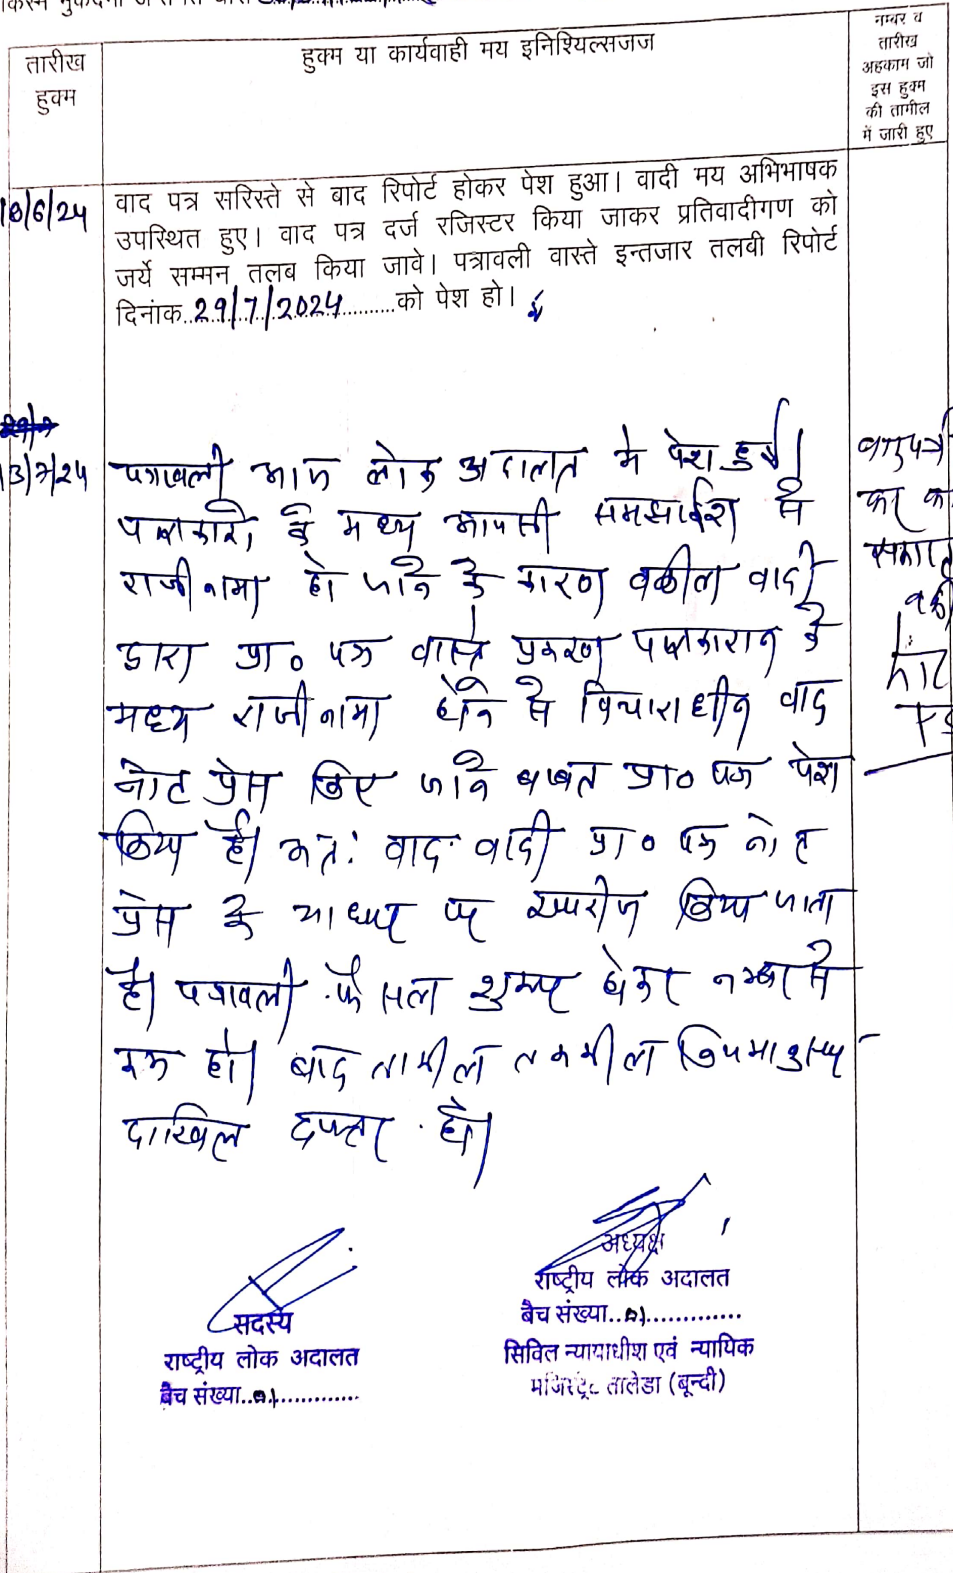 तारीख
हुक्म
हुक्म या कार्यवाही मय इनिश्यिल्सजज
नम्बर व
तारीख
अहकाम जो
इस हुक्म
की तामील
में जारी हुए
18/6/24
वाद पत्र सरिस्ते से बाद रिपोर्ट होकर पेश हुआ। वादी मय अभिभाषक
उपस्थित हुए। वाद पत्र दर्ज रजिस्टर किया जाकर प्रतिवादीगण को
जर्ये सम्मन तलब किया जावे। पत्रावली वास्ते इन्तजार तलवी रिपोर्ट
दिनांक..29/7/2024..........को पेश हो।
13/7/24
पत्रावली आज लोक अदालत मे पेश हुई।
पक्षकारो के मध्य आपसी समझाईश से
राजीनामा हो जाने के कारण वकील वादी
द्वारा प्रा० पत्र वास्ते प्रकरण पक्षकारान के
मध्य राजीनामा होने से विचाराधीन वाद
नोट प्रेस किए जाने बाबत प्रा० पत्र पेश
किया है। अतः वाद वादी प्रा० पत्र नोट
प्रेस के आधार पर खारीज किया जाता
है। पत्रावली फैसल शुमार होकर नम्बर से
कम हो। बाद तामील तकमील नियमानुसार
दाखिल दफ्तर हो।
सदस्य
राष्ट्रीय लोक अदालत
बैच संख्या..01..............
अध्यक्ष
राष्ट्रीय लोक अदालत
बैच संख्या..01..............
सिविल न्यायाधीश एवं न्यायिक
मजिस्ट्रेट तालेडा (बून्दी)